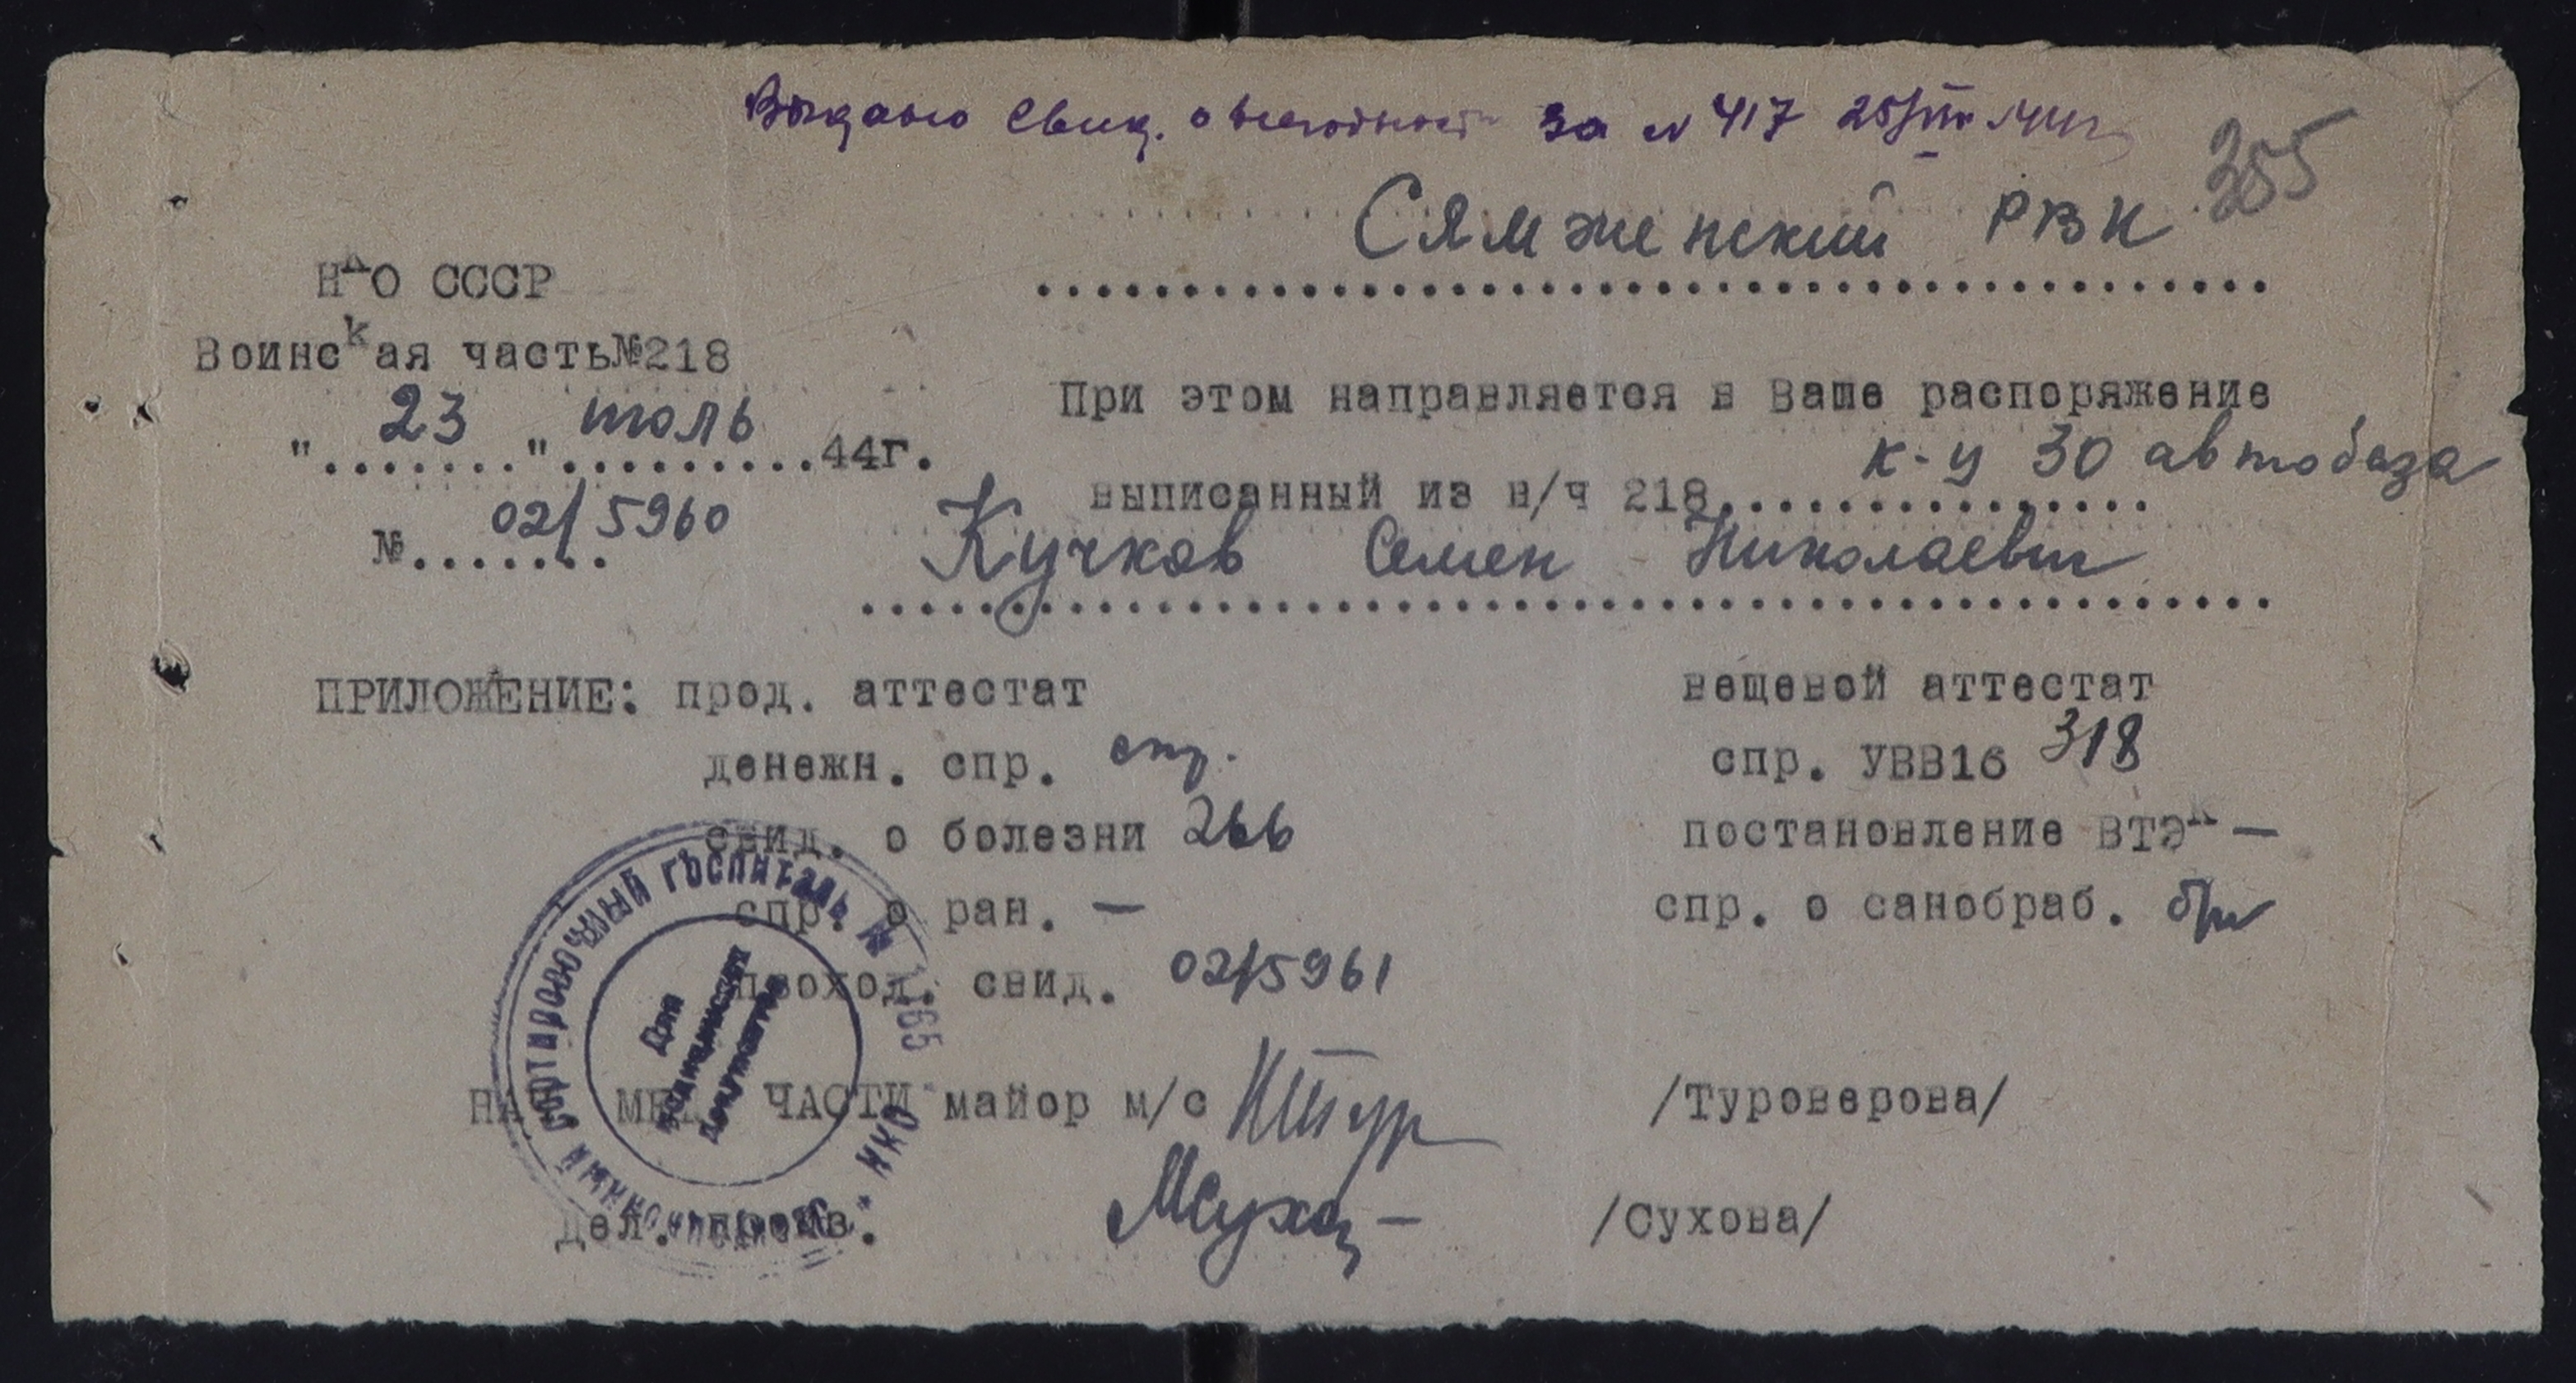 Выдано Свид. о негодности за N 417 25/VII 44г
355
Сямженский РВК
НКО СССР
Воинская часть№218
"23" июль 44г.
№ 02/5960
При этом направляется в Ваше распоряжение
выписанный из в/ч 218 к-ц 30 автобаза
Кучков Семен Николаевич
ПРИЛОЖЕНИЕ: прод. аттестат
вещевой аттестат
денежн. спр. спр.
спр. УВВ16 318
свид. о болезни 266
постановление ВТЭК —
спр. о ран. —
спр. о санобраб. б/н
проход. свид. 02/5961
НАЧ МЕД ЧАСТИ майор м/с /Туроверова/
Дел. произв. /Сухова/
Сортировочный эвакуационный госпиталь № 1165 * НКО *
Для
медицинских
документов